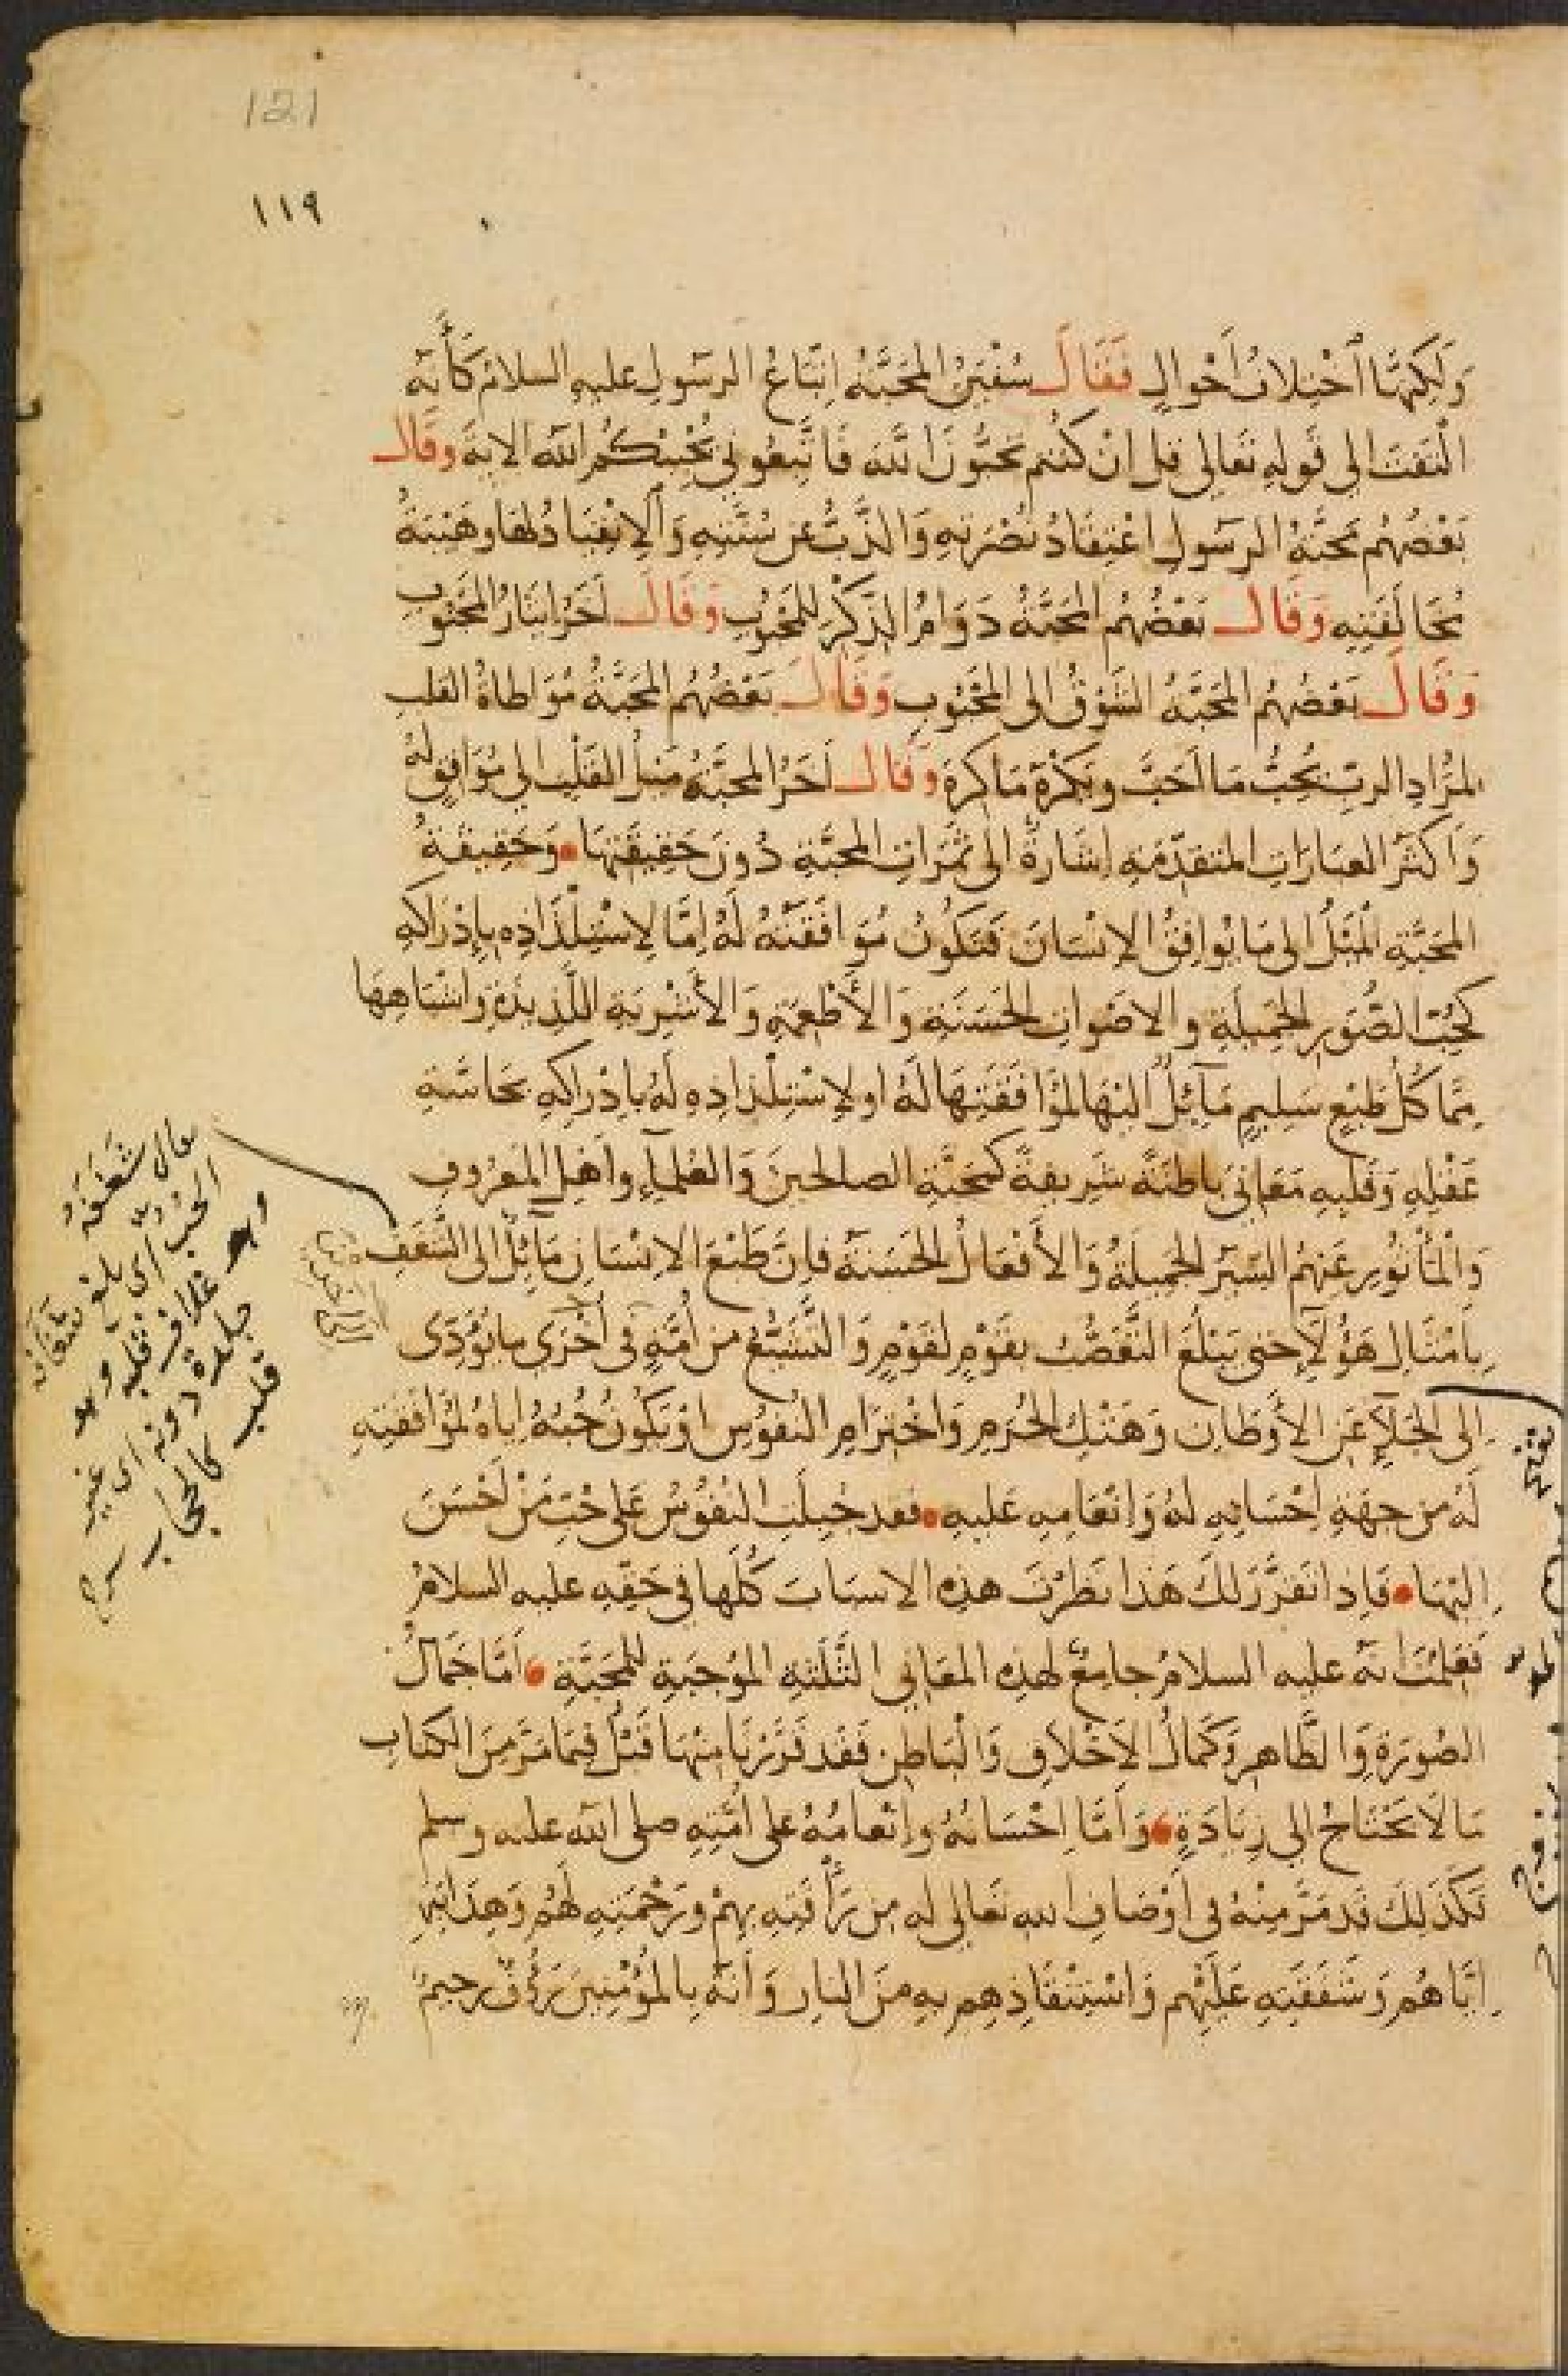 121
١١٩
وَلَكِنَّهَا اخْتِلافُ أَحْوَالٍ فَقَالَ سُفْيَنُ المَحَبَّةُ اتِّبَاعُ الرسَولِ عليهِ السلامُ كَأَنّه
الْتَفَتَ إلى قَولِهِ تعَالى قل ان كنُتم تحبُّونَ الله فَاتَّبعُوني يُحْبِبْكُم الله الاية وقال
بَعْضُهُم مَحَبَّةُ الرسَولِ اعْتِقَادُ نُصْرَتِهِ وَالذَّبُّ عن سُنَّتِهِ وَالاِنْقِيَادُ لهَا وهَيْبَةُ
مُخَالَفَتِهِ وَقَالَ بَعْضُهُم المَحَبَّةُ دَوَامُ الذِّكْرِ للمَحْبُوبِ وَقَالَ آخَرُ ايثَارُ المَحْبُوبِ
وَقَالَ بَعْضُهُم المَحَبَّةُ الشَوْقُ الى المَحْبُوبِ وَقَالَ بَعْضُهُم المَحَبَّةُ مُوَاطاةُ القلب
لمُرَادِ الربّ يُحِبُّ مَا احَبَّ ويَكْرَهُ مَا كرِهَ وَقَالَ آخَرُ المحَبَّةُ مَيْلُ القَلْبِ الى مُوَافِقٍ لهُ
وَاكثَرُ العبَارَاتِ المتقدّمَةِ اشَارةٌ الى ثَمَرَاتِ المحَبَّةِ دُونَ حَقِيقَتِهَا وَحَقِيقَةُ
المحَبَّةِ الْمَيْلُ الى مَا يُوافِقُ الاِنْسَانَ فَتكُونُ مُوَافَقَتُهُ لَهُ اِمَّا لاِسْتِلْذَاذِه بِاِدْرَاكِهِ
كحُبّ الصُّوَرِ الجَمِيلَةِ والاصْوَاتِ الحَسَنَةِ وَالأَطْعِمَةِ وَالأَشْرِبَةِ اللَّذِيذَةِ واشبَاهِهَا
مِمّا كُلُّ طَبْعٍ سَلِيمٍ مَآئِلٌ اليْهَا لمُوَافَقَتِهَا لَهُ او لاِسْتِلْذاذِهِ لَهُ بادْراكِهِ بحَاسّةِ
عَقْلِهِ وَقَلْبِهِ مَعَانيَ بَاطنَةً شَرِيفةً كمَحَبَّةِ الصالحينَ وَالعُلمآءِ واهلِ المَعرُوفِ
وَالْمَأْثُورِ عَنهُمُ السّيَرُ الجَمِيلَةُ وَالأَفْعَالُ الحَسَنَةُ فإنَّ طَبْعَ الاِنْسَانِ مَآئِلٌ الى الشَّغَفِ
بِاَمْثَالِ هَؤُلآءِ حتى يَبْلُغَ التَّعَصُّبُ بقَوْمٍ لقَوْمٍ وَالتَّشَيُّعُ من اُمَّةٍ في أُخْرَى ما يُؤَدّى
الى الجَلآءِ عَنِ الأوْطَانِ وَهَتْكِ الحُرَمِ وَاخْترَامِ النُفوُسِ اوْ يَكُونُ حُبُّهُ اياهُ لمُوَافَقَتِهِ
لَهُ من جِهَةِ اِحْسَانِهِ لهُ وَاِنعَامِهِ عَليهِ فقد جُبِلَتِ النُفوُسُ عَلى حُبّ مَنْ أَحْسَنَ
اليْهَا فَاِذا تَقَرَّرَ لكَ هَذا نَظَرْتَ هذِهِ الاسبَابَ كُلَّها في حَقِّهِ عليه السلامُ
فَعَلِمْتَ انّهُ عليه السلامُ جامِعٌ لهذِهِ المعَاني الثَّلَثةِ المُوجبَةِ للمَحَبَّةِ اَمَّا جَمَالُ
الصُورَةِ وَالظَّاهِرِ وَكَمَالُ الاَخْلَاقِ وَالْبَاطِنِ فَقَد قَرَّرْنَا مِنْهَا قَبْلُ فِيمَا مَرَّ مِنَ الكتَابِ
مَا لَا يَحْتَاجُ الى زِيَادَةٍ وَاَمَّا اِحْسَانُهُ وانْعَامُهُ على اُمَّتِهِ صلى الله عليه وسلم
فَكَذَلِكَ قد مَرَّ مِنْهُ في اَوْصَافِ الله تعَالى له مِن رَأْفَتِهِ بهِمْ وَرَحْمَتِهِ لَهُمْ وَهِدَايَتِهِ
اِيَّاهُم وَشَفَقَتِهِ عَلَيْهِم وَاسْتِنْقَاذِهم بهِ مِنَ النارِ وَاَنَّهُ بالمُؤْمِنِينَ رَؤُفٌ رحيمٌ
يقال شَغَفَهُ
الحُب أي بلغ شغافه
وهو غلاف قلبه وهو
جلدة دونه
قلب كالحجاب